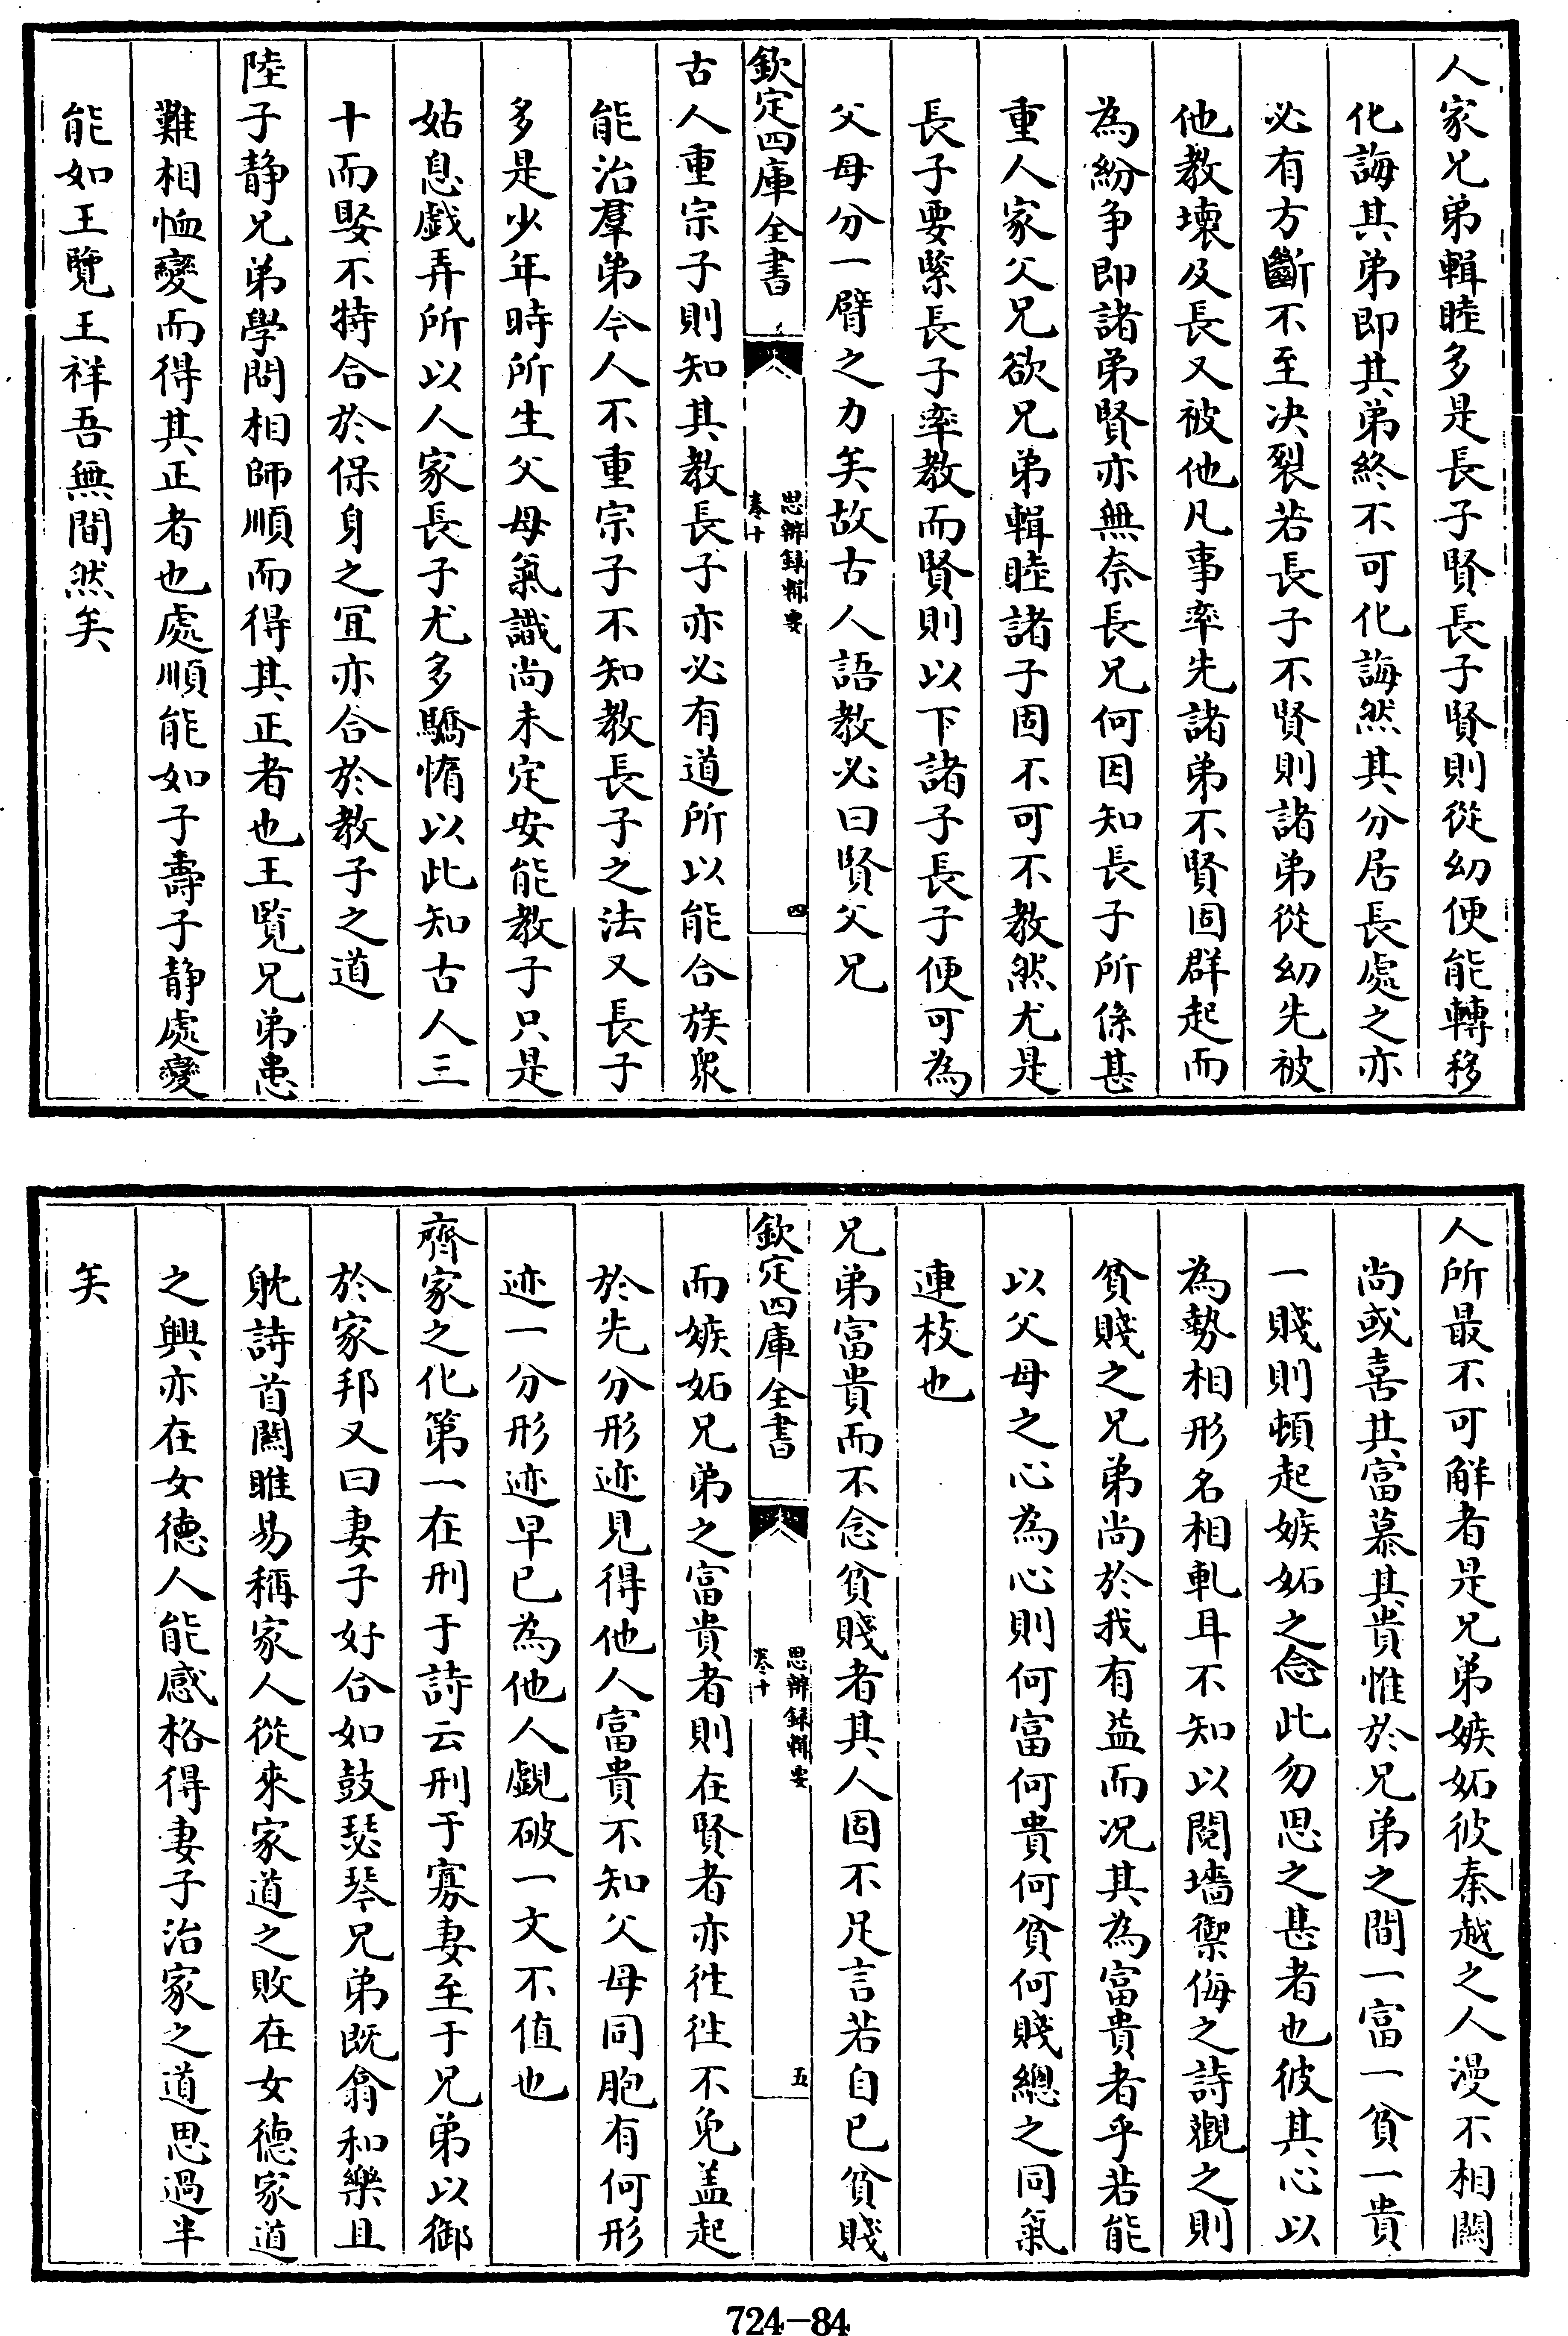 人家兄弟輯睦多是長子賢長子賢則從幼便能轉移
化誨其弟即其弟終不可化誨然其分居長處之亦
必有方斷不至决裂若長子不賢則諸弟從幼先被
他教壊及長又被他凡事率先諸弟不賢固群起而
為紛争即諸弟賢亦無奈長兄何因知長子所係甚
重人家父兄欲兄弟輯睦諸子固不可不教然尤是
長子要緊長子率教而賢則以下諸子長子便可為
父母分一臂之力矣故古人語教必曰賢父兄
欽定四庫全書
思辨録輯要
卷十
四
古人重宗子則知其教長子亦必有道所以能合族衆
能治羣弟今人不重宗子不知教長子之法又長子
多是少年時所生父母氣識尚未定安能教子只是
姑息戯弄所以人家長子尤多驕惰以此知古人三
十而娶不特合於保身之宜亦合於教子之道
陸子靜兄弟學問相師順而得其正者也王覽兄弟患
難相恤變而得其正者也處順能如子壽子靜處變
能如王覽王祥吾無間然矣
人所最不可解者是兄弟嫉妬彼秦越之人漫不相闗
尚或喜其富慕其貴惟於兄弟之間一富一貧一貴
一賤則頓起嫉妬之念此勿思之甚者也彼其心以
為勢相形名相軋耳不知以䦧墻禦侮之詩觀之則
貧賤之兄弟尚於我有益而况其為富貴者乎若能
以父母之心為心則何富何貴何貧何賤總之同氣
連枝也
兄弟富貴而不念貧賤者其人固不足言若自已貧賤
欽定四庫全書
思辨録輯要
卷十
五
而嫉妬兄弟之富貴者則在賢者亦徃徃不免盖起
於先分形迹見得他人富貴不知父母同胞有何形
迹一分形迹早已為他人覷破一文不值也
齊家之化第一在刑于詩云刑于寡妻至于兄弟以御
於家邦又曰妻子好合如鼓瑟琴兄弟既翕和樂且
躭詩首闗雎易稱家人從來家道之敗在女德家道
之興亦在女德人能感格得妻子治家之道思過半
矣
724-84